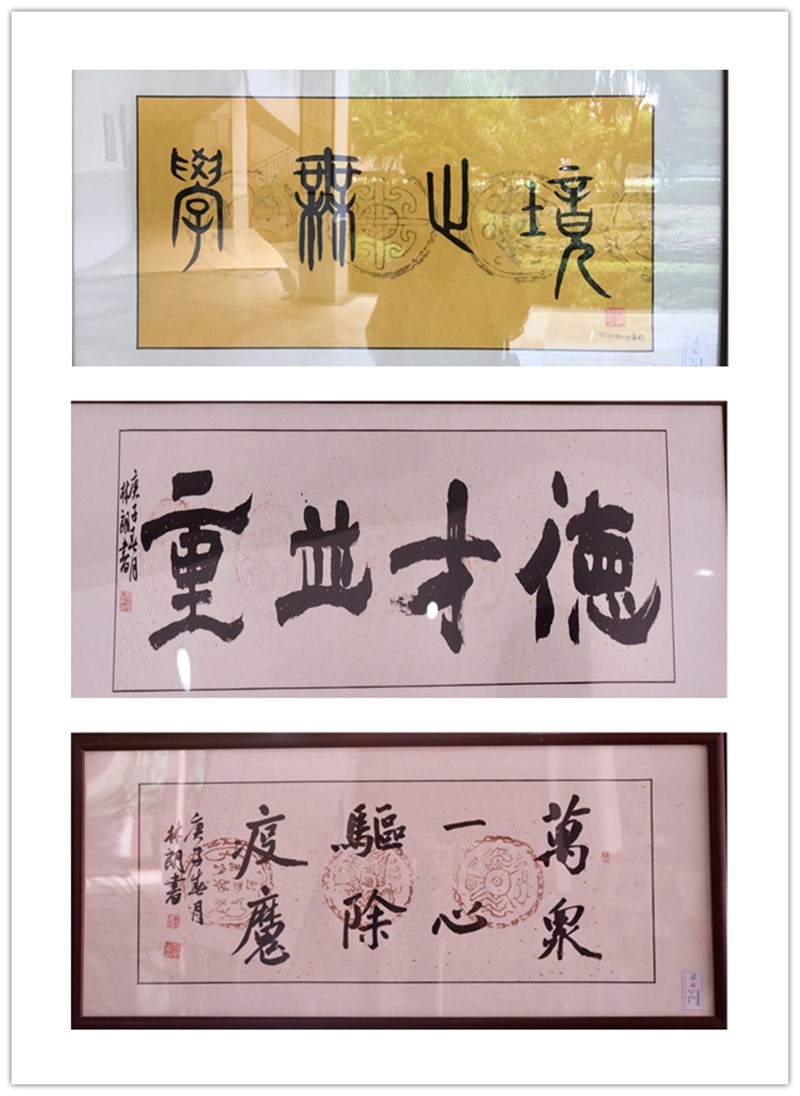 學無止境
德才並重
庚子春月
林朗書
萬衆
一心
驅除
疫魔
庚子春月
林朗書